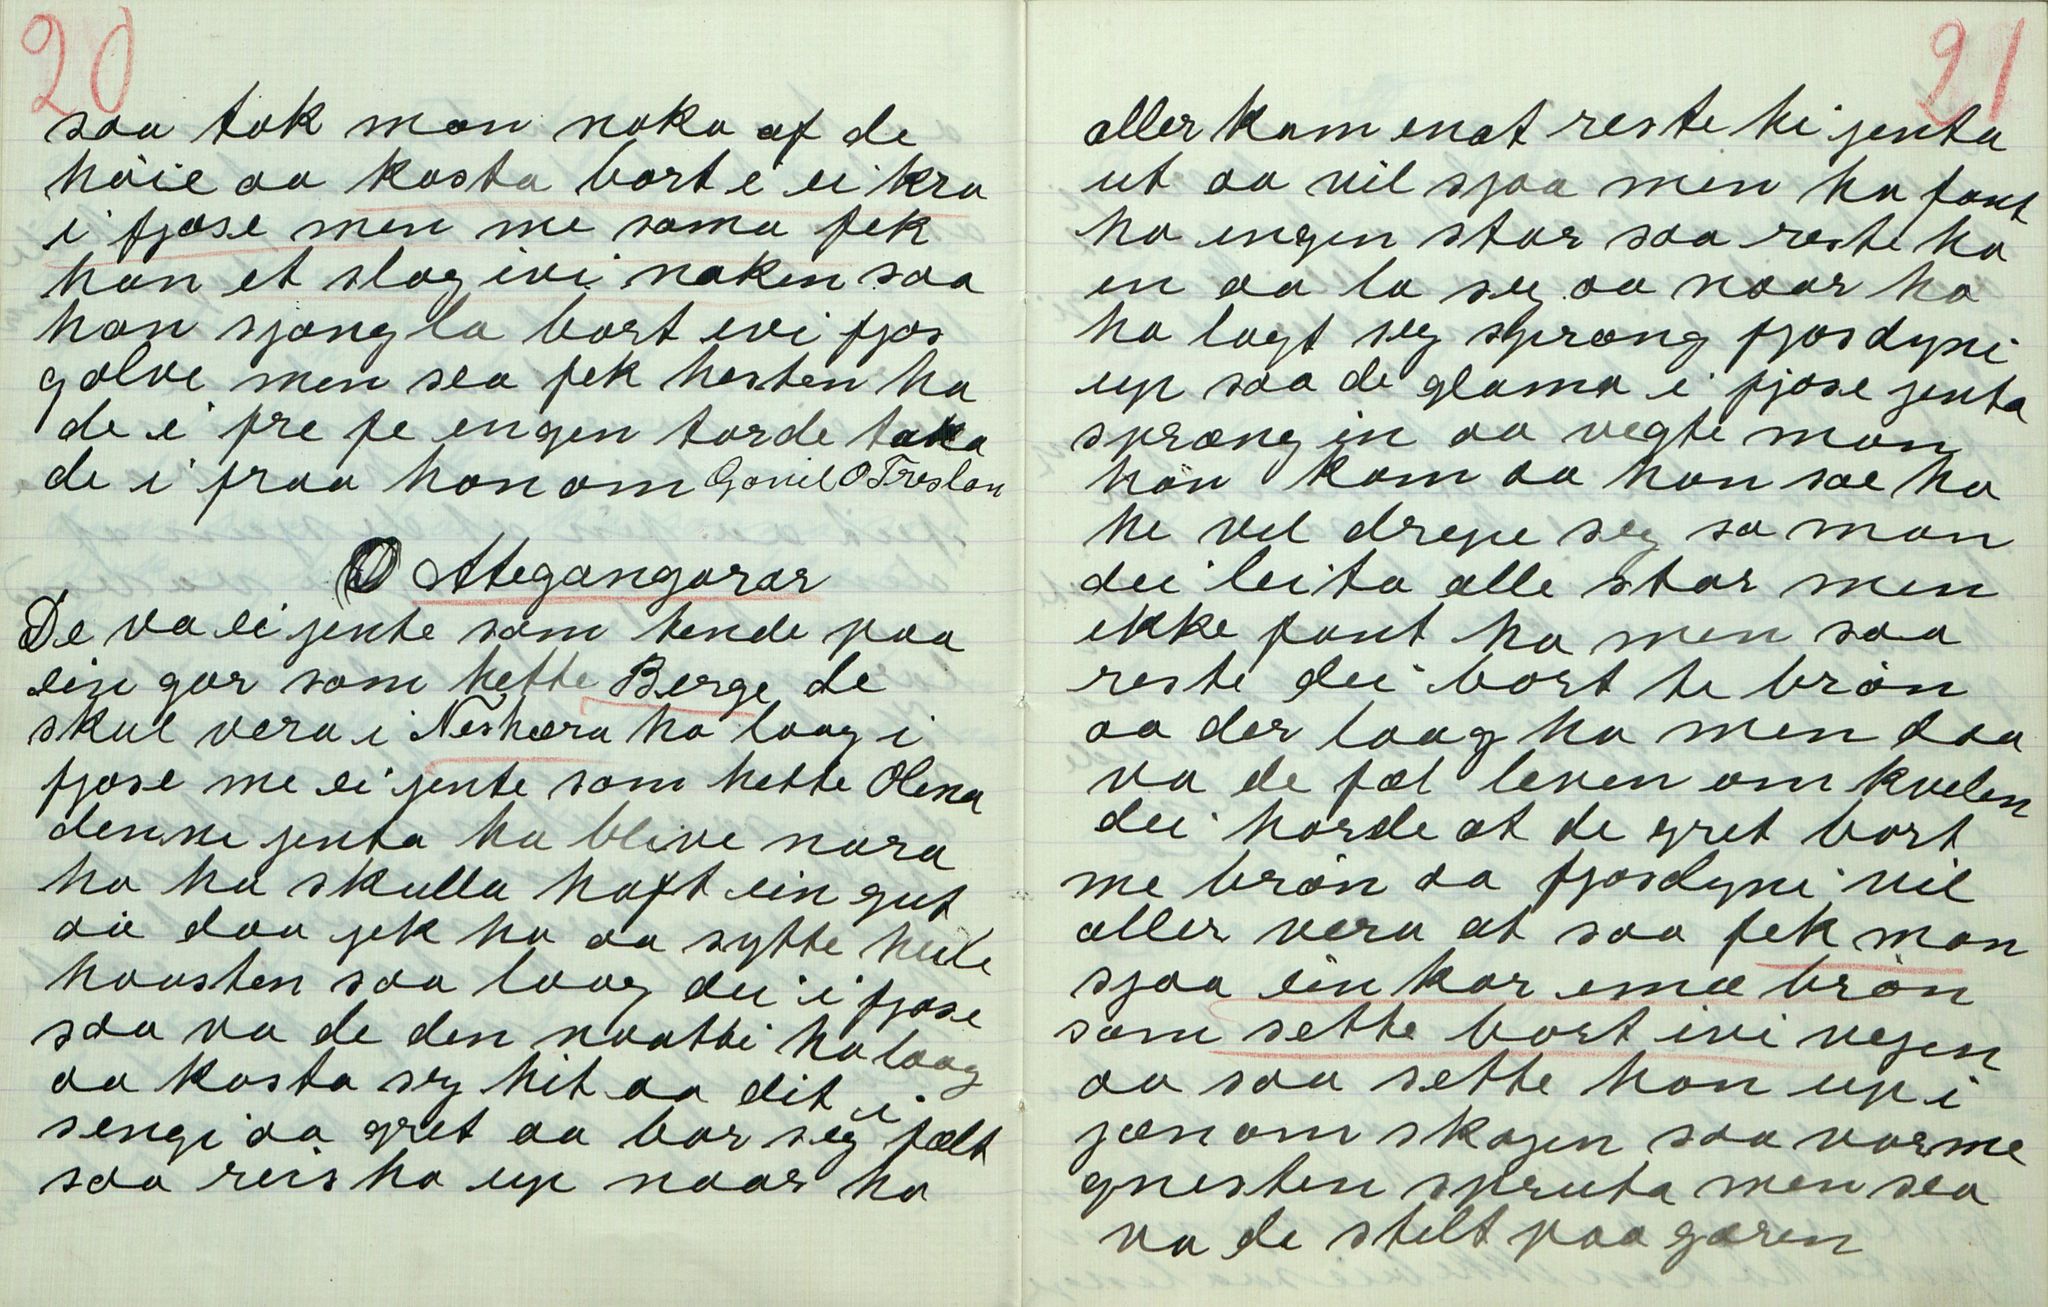 20
saa tok man noko af de
höie aa kasta bort e ei kra
i fjose men me sama fek
han et slag ivi naken saa
han sjangla bort ivi fjos
golve men sea fek hesten ha
de i fre fe engen torde taka
de i fraa honom Gonil O Treslan
Attegangarar
De va ei jente som tende paa
ein gar som hette Berge de
skul vera i Nesheræ ho laag i
fjose me ei jente som hette Olena
denne jenta ha blive nara
ho ha skulla haft ein gut
aa daa gek ho aa sytte heile
hausten saa laag dei i fjose
saa va de den naatti ho laag
aa kasta seg hit aa dit i
sengi aa gret aa bar seg fælt
saa reis ho up naar ho
21
aller kam enat reste hi jenta
ut aa vil sjaa men ho fant
ho engen star saa reste ho
en aa la seg aa naar ho
ha lagt seg sprang fjosdyni
up saa de glama i fjose jenta
sprang in aa vegte man
han kom aa han sae ho
he vel drepe seg sa man
dei leita alle star men
ikke fant ho men saa
reste dei bort te brön
aa der laag ho men daa
va de fæl leven om kvelen
dei horde at de gret bort
me brön aa fjosdyni vil
aller vera at saa fek man
sjaa ein kar emæ brön
som sette bort ivi vegen
aa saa sette han up i
jænom skogen saa varme
gnesten spruta men sea
va de stelt paa garen